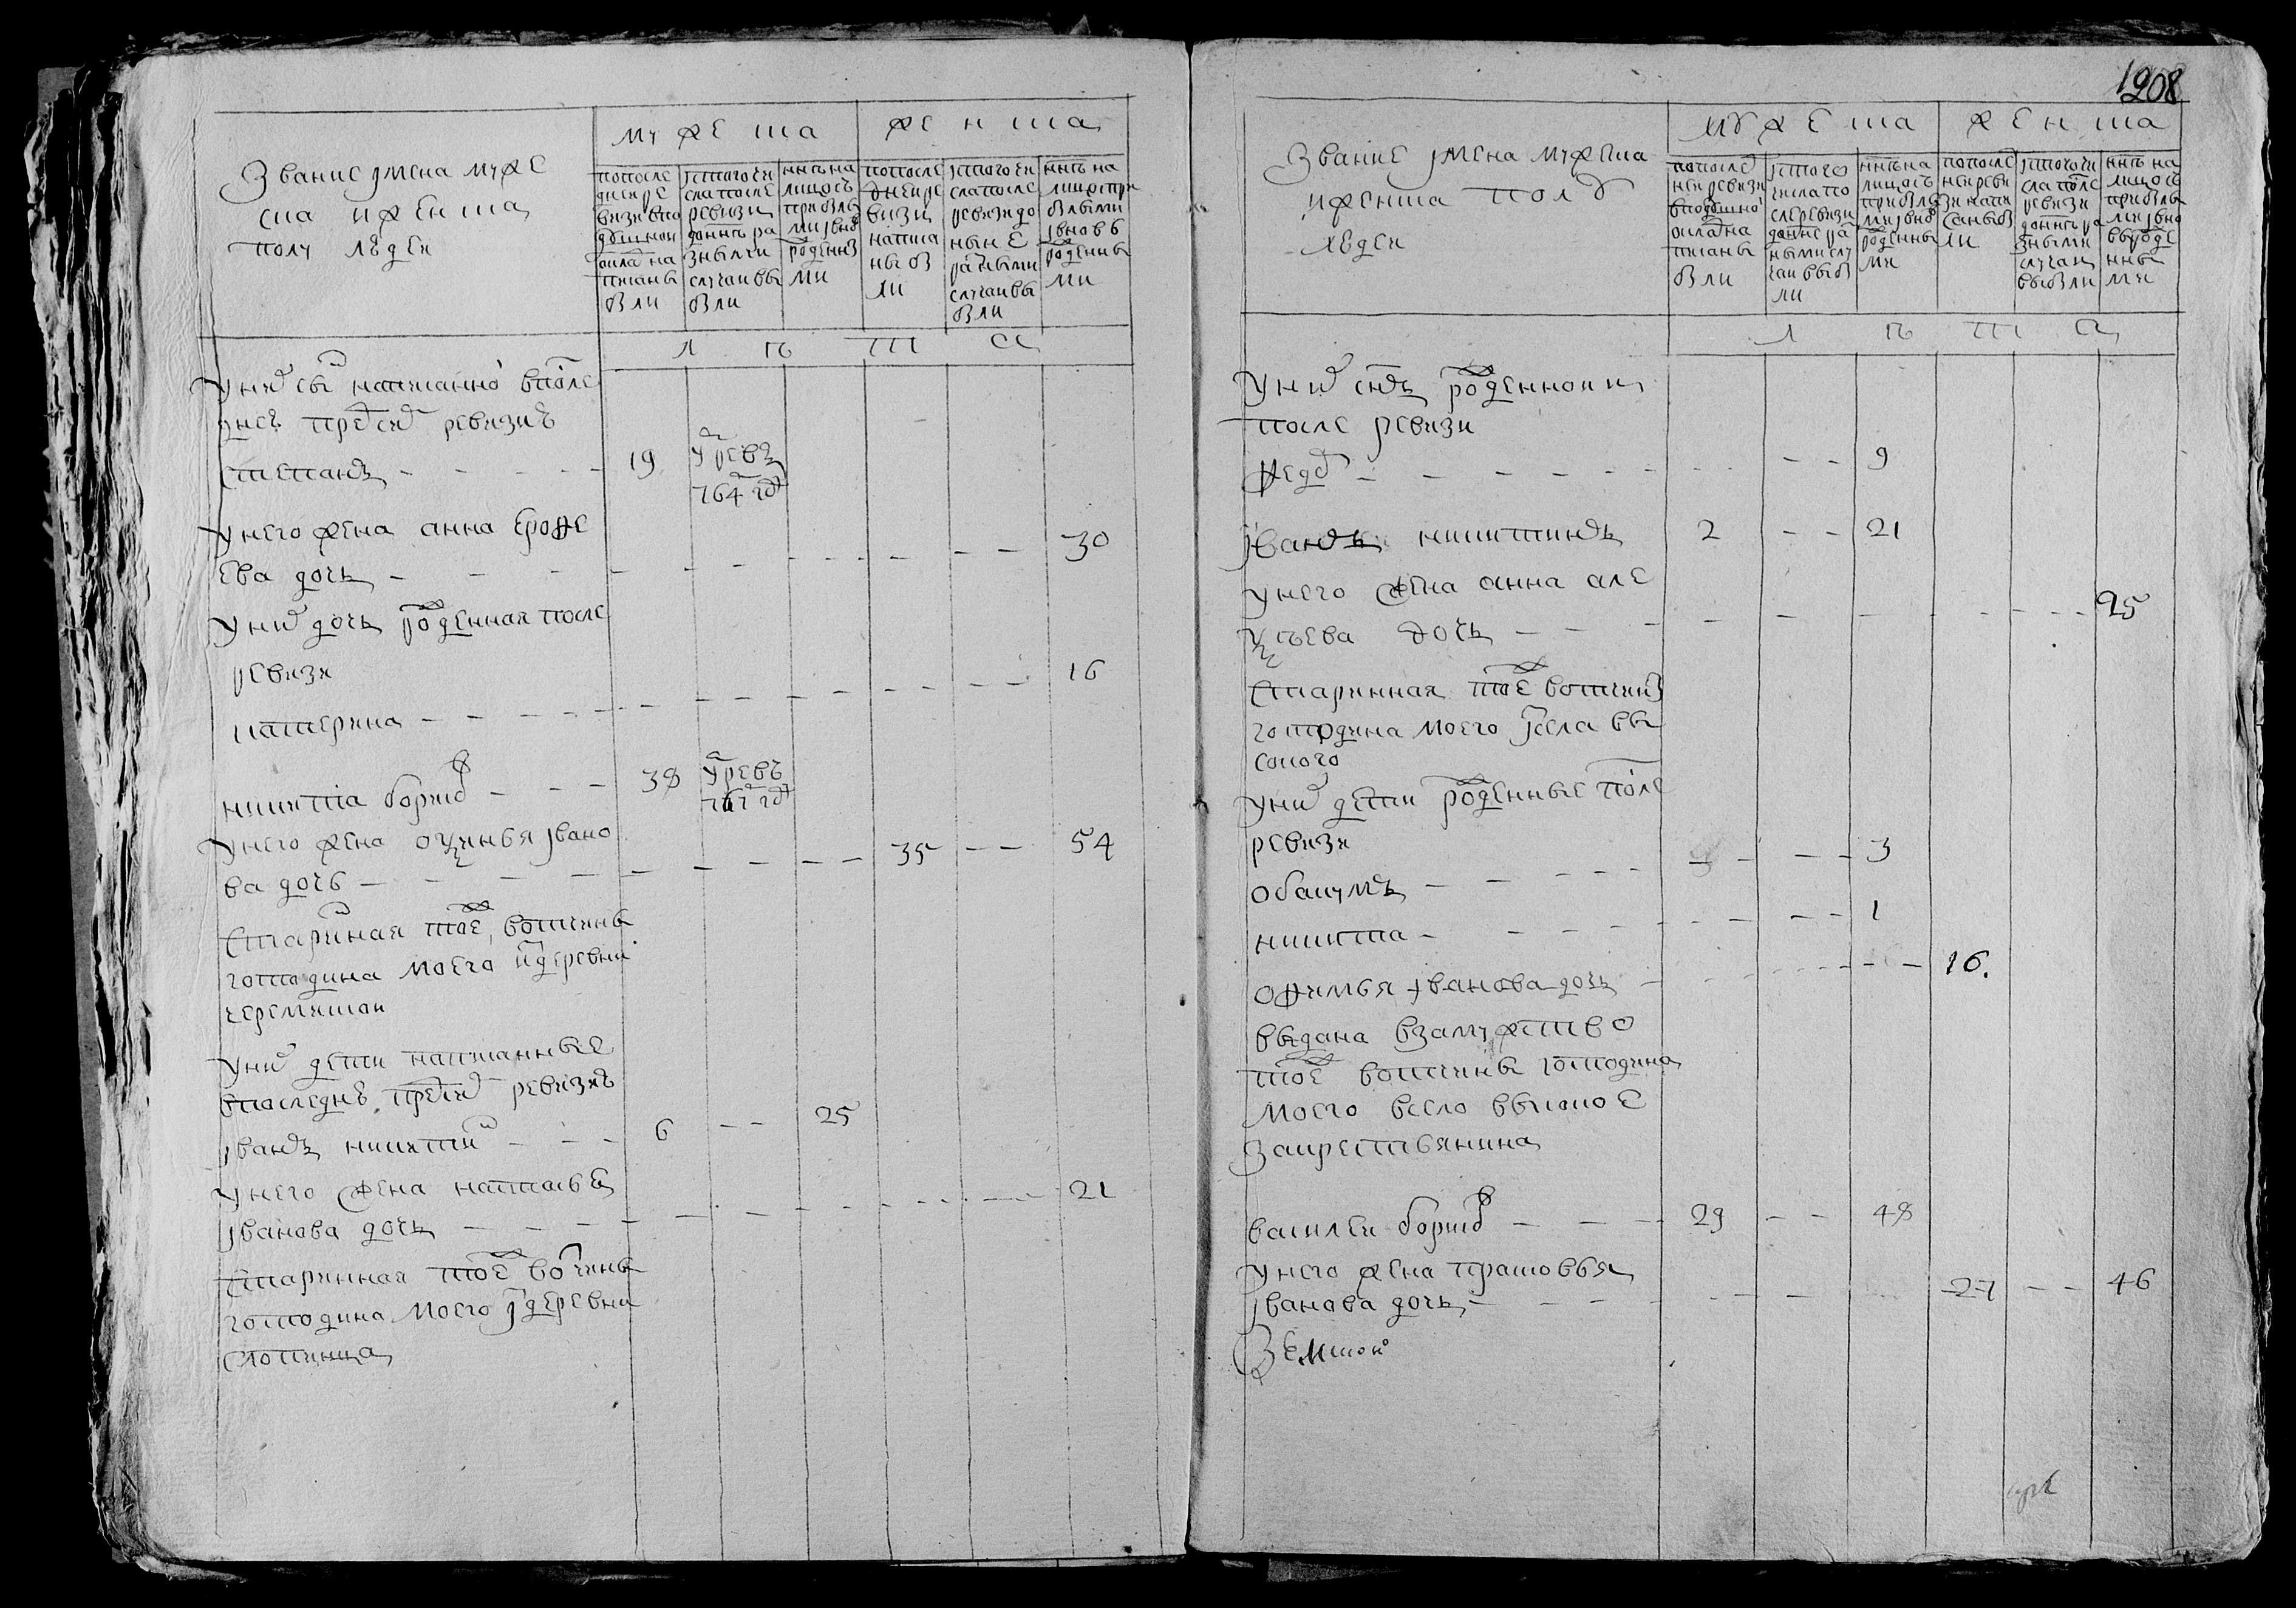 Звание імена мужес
ска и женска
полу людеи
мужеска
женска
пописле
днеи ре
визи впо
душнои
оклад на
писаны
были
ис того чи
сла после
ревизи
до ннѣ ра
зными
случаи вы
были
ннѣ на
лицо съ
прибылы
ми і вно
рожденны
ми
по после
днеи ре
визи
написа
ны бы
ли
ис того чи
сла после
ревизи до
ныне
разными
случаи вы
были
ннѣ на
лицо съ при
былыми
і вновь
рожденны
ми
л ѣ т а
У них сын написанной в после
днеи пред сей ревизиеи
Степанъ 19 умре въ 764 году
У него жена Анна Ерофе
ева дочь 30
У них дочь рожденная после
ревизи
Катерина 16
Никита Борисов 38 умре въ 767 году
У него жена Офимья Івано
ва дочь 35 54
Старинная тоежъ вотчины
господина моего из деревни
Черемисок
У них дети написанные
в последней пред сей ревизиеи
Іванъ Никитин 6 25
У него жена Наталья
Іванова дочь 21
Старинная тоежъ вотчины
господина моего из деревни
1208
Звание імена мужеска
и женска полу
людеи
мужеска
женска
по после
днеи ревизи
в подушно
оклад на
писаны
были
ис того
числа по
сле ревизи
до нне ра
зными слу
чаи выбы
ли
ннѣ на
лицо съ
прибылы
ми і вно
рожденны
ми
по после
днеи реви
зи напи
саны бы
ли
ис того чи
сла после
ревизи
до ннѣ ра
зными
случаи
выбыли
ннѣ на
лицо съ
прибылы
ми і вно
вь рожде
нны
ми
л ѣ т а
У них сынъ рожденнои
после ревизи
Федор 9
Іванъ Никитинъ 2 21
У него жена Анна Але
ксѣева дочь 25
Старинная тоежъ вотчины
господина моего из села Вы
сокого
У них дети рожденные после
ревизи
Абакумъ 3
Никита 1
Офимья Іванова дочь 16.
выдана в замужство
тоежъ вотчины господина
моего в село Высокое
за крестьянина
Василеи Борисов 29 48
У него жена Прасковья
Іванова дочь 27 46